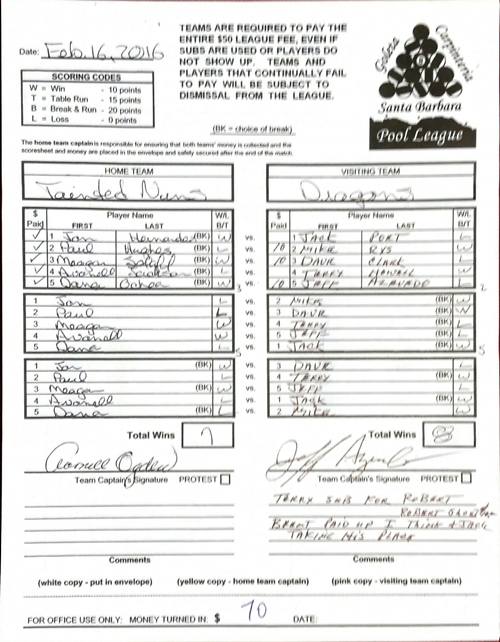 Date: Feb. 16, 2016
TEAMS ARE REQUIRED TO PAY THE
ENTIRE $50 LEAGUE FEE, EVEN IF
SUBS ARE USED OR PLAYERS DO
NOT SHOW UP. TEAMS AND
PLAYERS THAT CONTINUALLY FAIL
TO PAY WILL BE SUBJECT TO
DISMISSAL FROM THE LEAGUE.
Goleta Carpinteria
Santa Barbara
Pool League
SCORING CODES
W = Win - 10 points
T = Table Run - 15 points
B = Break & Run - 20 points
L = Loss - 0 points
(BK = choice of break)
The home team captain is responsible for ensuring that both teams' money is collected and the
scoresheet and money are placed in the envelope and safely secured after the end of the match.
HOME TEAM
Tainted Nuns
$ Paid Player Name FIRST LAST W/L B/T
1 Jon Hernandez (BK) W
2 Paul Hughes (BK)
3 Meagan (BK) W
4 Avonell L
5 Dana Ochoa (BK) W
3
1 Jon L
2 Paul L
3 Meagan W
4 Avonell W
5 Dana L
1 Jon (BK) W
2 Paul L
3 Meagan (BK) W
4 Avonell L
5 Dana (BK) L
Total Wins 7
Team Captain's Signature PROTEST
Comments
vs.
VISITING TEAM
Dragons
$ Paid Player Name FIRST LAST W/L B/T
1 JACK PORT L
10 2 MIKE RYS W
10 3 DAVE CLARK L
4 TERRY HOWELL W
10 5 JEFF ALVARADO L
2
2 MIKE (BK) W
3 DAVE (BK) W
4 TERRY (BK) L
5 JEFF (BK) L
1 JACK (BK) W
3 DAVE L
4 TERRY (BK) W
5 JEFF L
1 JACK (BK) W
2 MIKE W
Total Wins 8
Team Captain's Signature PROTEST
TERRY SUB FOR ROBERT
BRENT PAID UP I THINK & JACK
TAKING HIS PLACE
Comments
(white copy - put in envelope) (yellow copy - home team captain) (pink copy - visiting team captain)
FOR OFFICE USE ONLY: MONEY TURNED IN: $ 70 DATE: